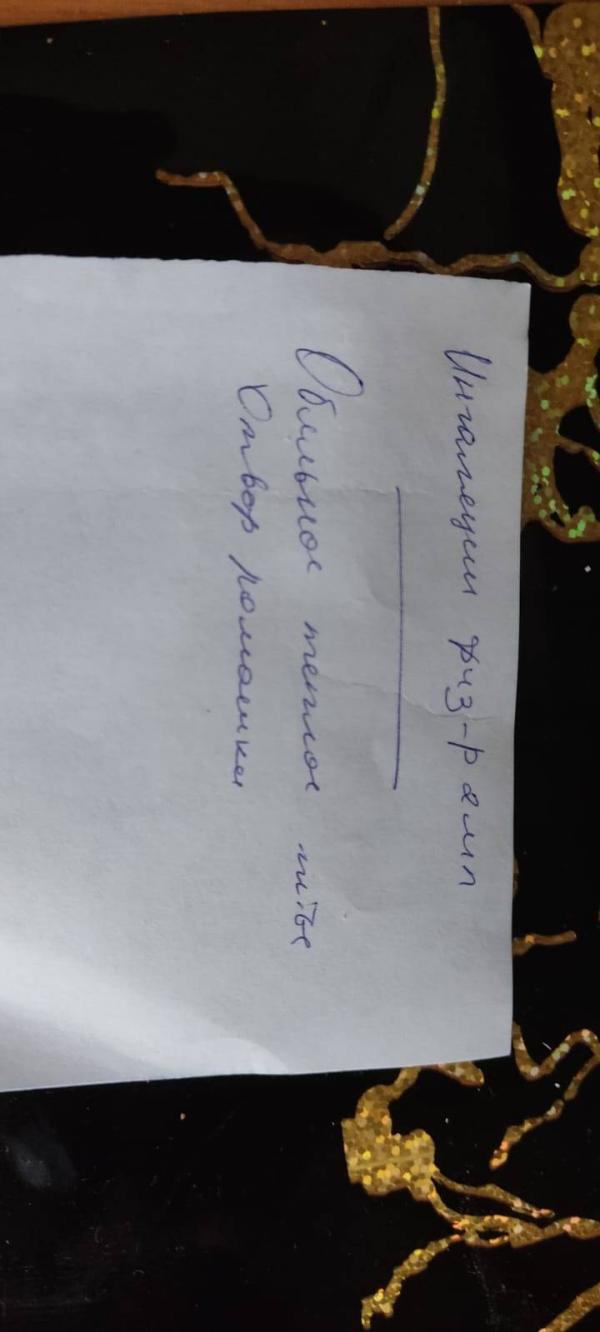 Ингаляции физ-р амп
Обильное теплое питье
Отвар ромашки